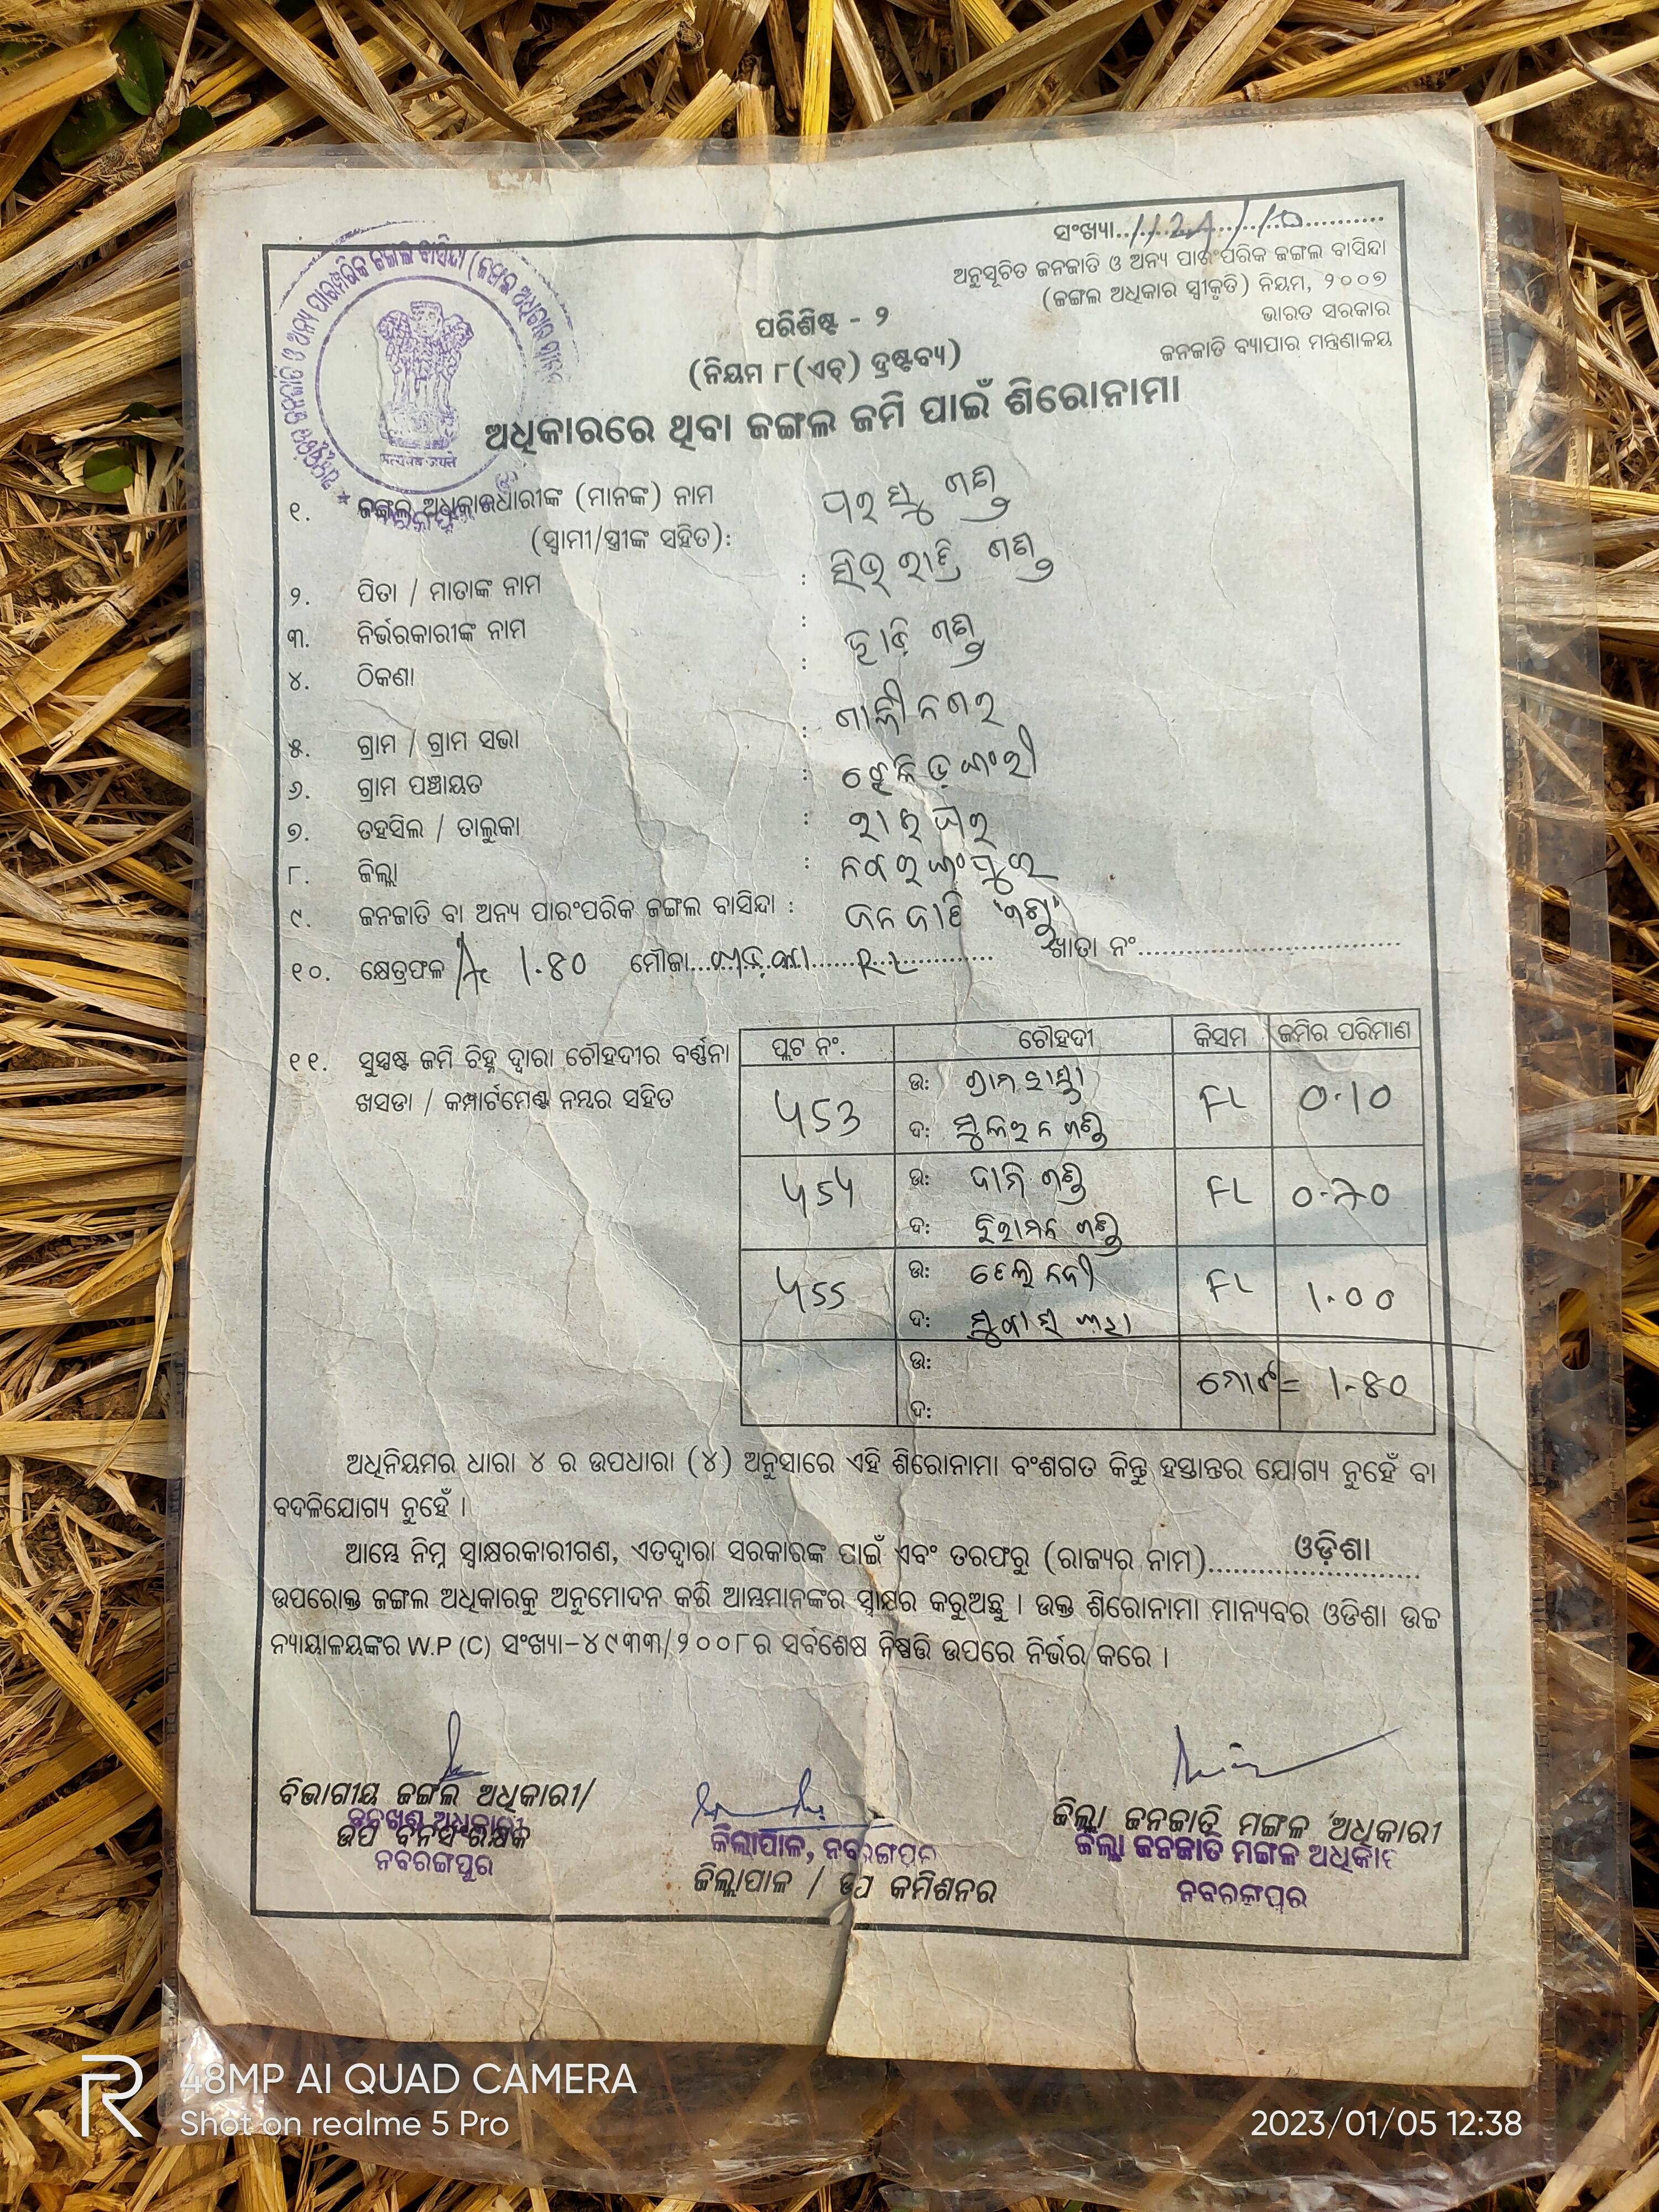 ସଂଖ୍ୟା
ଅନୁସୂଚିତ ଜନଜାତି ଓ ଅନ୍ୟ ପାରଂପରିକ ଜଙ୍ଗଲ ବାସିନ୍ଦା
(ଜଙ୍ଗଲ ଅଧିକାର ସ୍ୱୀକୃତି) ନିୟମ, ୨୦୦୭
ଭାରତ ସରକାର
ଜନଜାତି ବ୍ୟାପାର ମନ୍ତ୍ରଣାଳୟ
ପରିଶିଷ୍ଟ - ୨
(ନିୟମ ୮(ଏଚ୍) ଦ୍ରଷ୍ଟବ୍ୟ)
ଅଧିକାରରେ ଥିବା ଜଙ୍ଗଲ ଜମି ପାଇଁ ଶିରୋନାମା
୧. ଜଙ୍ଗଲ ଅଧିକାରଧାରୀଙ୍କ (ମାନଙ୍କ) ନାମ ଗଣ୍ଡ
(ସ୍ୱାମୀ/ସ୍ତ୍ରୀଙ୍କ ସହିତ):
୨. ପିତା / ମାତାଙ୍କ ନାମ : ଗଣ୍ଡ
୩. ନିର୍ଭରକାରୀଙ୍କ ନାମ : ଗଣ୍ଡ
୪. ଠିକଣା :
୫. ଗ୍ରାମ / ଗ୍ରାମ ସଭା : ଗାନ୍ଧୀନଗର
୬. ଗ୍ରାମ ପଞ୍ଚାୟତ :
୭. ତହସିଲ / ତାଲୁକା : ରାଇଘର
୮. ଜିଲ୍ଲା : ନବରଙ୍ଗପୁର
୯. ଜନଜାତି ବା ଅନ୍ୟ ପାରଂପରିକ ଜଙ୍ଗଲ ବାସିନ୍ଦା : ଜନଜାତି 'ଗଣ୍ଡ'
୧୦. କ୍ଷେତ୍ରଫଳ Ac 1.80 ମୌଜା ଖାତା ନଂ
୧୧. ସୁସ୍ପଷ୍ଟ ଜମି ଚିହ୍ନ ଦ୍ୱାରା ଚୌହଦୀର ବର୍ଣ୍ଣନା
ଖସଡା / କମ୍ପାର୍ଟମେଣ୍ଟ ନମ୍ବର ସହିତ
ପ୍ଲଟ ନଂ. ଚୌହଦୀ କିସମ ଜମିର ପରିମାଣ
ଉ: ଗ୍ରାମ ରାସ୍ତା
453 FL 0.10
ଦ: ଗଣ୍ଡ
ଉ: ଗଣ୍ଡ
454 FL 0.70
ଦ: ଗଣ୍ଡ
ଉ: ତେଲ ନଦୀ
455 FL 1.00
ଦ:
ଉ:
ମୋଟ = 1.80
ଦ:
ଅଧିନିୟମର ଧାରା ୪ ର ଉପଧାରା (୪) ଅନୁସାରେ ଏହି ଶିରୋନାମା ବଂଶଗତ କିନ୍ତୁ ହସ୍ତାନ୍ତର ଯୋଗ୍ୟ ନୁହେଁ ବା
ବଦଳିଯୋଗ୍ୟ ନୁହେଁ ।
ଆମ୍ଭେ ନିମ୍ନ ସ୍ୱାକ୍ଷରକାରୀଗଣ, ଏତଦ୍ୱାରା ସରକାରଙ୍କ ପାଇଁ ଏବଂ ତରଫରୁ (ରାଜ୍ୟର ନାମ) ଓଡ଼ିଶା
ଉପରୋକ୍ତ ଜଙ୍ଗଲ ଅଧିକାରକୁ ଅନୁମୋଦନ କରି ଆମ୍ଭମାନଙ୍କର ସ୍ୱାକ୍ଷର କରୁଅଛୁ । ଉକ୍ତ ଶିରୋନାମା ମାନ୍ୟବର ଓଡିଶା ଉଚ୍ଚ
ନ୍ୟାୟାଳୟଙ୍କର W.P (C) ସଂଖ୍ୟା-୪୯୩୩/୨୦୦୮ର ସର୍ବଶେଷ ନିଷ୍ପତ୍ତି ଉପରେ ନିର୍ଭର କରେ ।
ବିଭାଗୀୟ ଜଙ୍ଗଲ ଅଧିକାରୀ/
ଉପ ବନସଂରକ୍ଷକ
ନବରଙ୍ଗପୁର
ଜିଲ୍ଲାପାଳ, ନବରଙ୍ଗପୁର
ଜିଲ୍ଲାପାଳ / ଉପ କମିଶନର
ଜିଲ୍ଲା ଜନଜାତି ମଙ୍ଗଳ ଅଧିକାରୀ
ଜିଲ୍ଲା ଜନଜାତି ମଙ୍ଗଳ ଅଧିକାରୀ
ନବରଙ୍ଗପୁର
48MP AI QUAD CAMERA
Shot on realme 5 Pro
2023/01/05 12:38